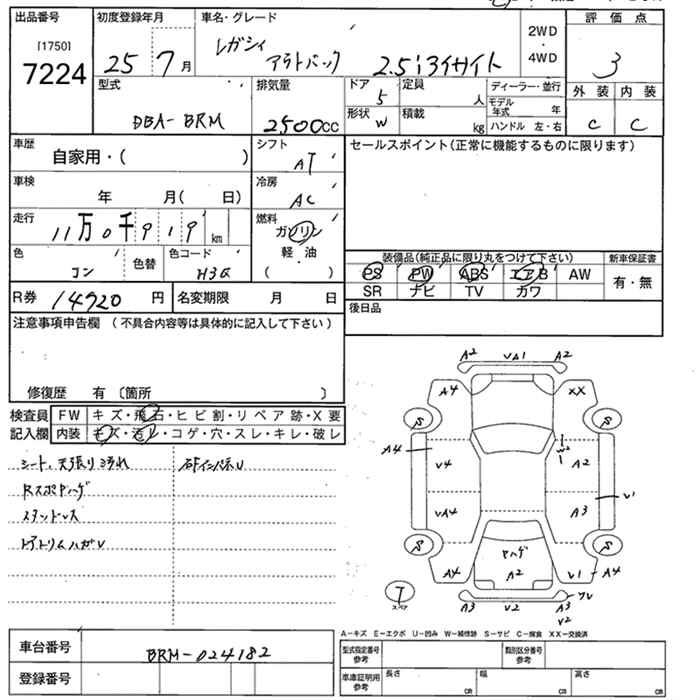 出品番号
[1750]
7224
初度登録年月
25 7 月
車名・グレード
レガシィ アウトバック 2.5i アイサイト
2WD
・
4WD
評価点
3
型式
DBA-BRM
排気量
2500cc
ドア
5
形状
W
定員
人
積載
kg
ディーラー・並行
モデル年式 年
ハンドル 左・右
外装 内装
C C
車歴
自家用・( )
シフト
AT
セールスポイント(正常に機能するものに限ります)
車検
年 月( 日)
冷房
AC
走行
11万0千919 km
燃料
ガソリン
軽・油
( )
色
コン
色替
色コード
H3Q
装備品(純正品に限り丸をつけて下さい)
新車保証書
PS PW ABS エアB AW
有・無
SR ナビ TV カワ
R券 14920 円
名変期限 月 日
後日品
注意事項申告欄 (不具合内容等は具体的に記入して下さい)
修復歴 有 〔箇所 〕
検査員
記入欄
FW キズ・飛石・ヒビ割・リペア跡・X要
内装 キズ・汚レ・コゲ・穴・スレ・キレ・破レ
シート、天張り汚れ
スタンドレス
A2 VA1 A2
A4 XX
S S
A4 V4 W2 A2
V1
VA4 A3
S S
ヤハゲ
A4 A2 V1 A4
T
スペア
A3 V2 A3
V2
A-キズ E-エクボ U-凹み W-補修跡 S-サビ C-腐食 XX-交換済
車台番号
BRM-024182
登録番号
型式指定番号
参考
類別区分番号
参考
車庫証明用
参考
長さ cm
幅 cm
高さ cm